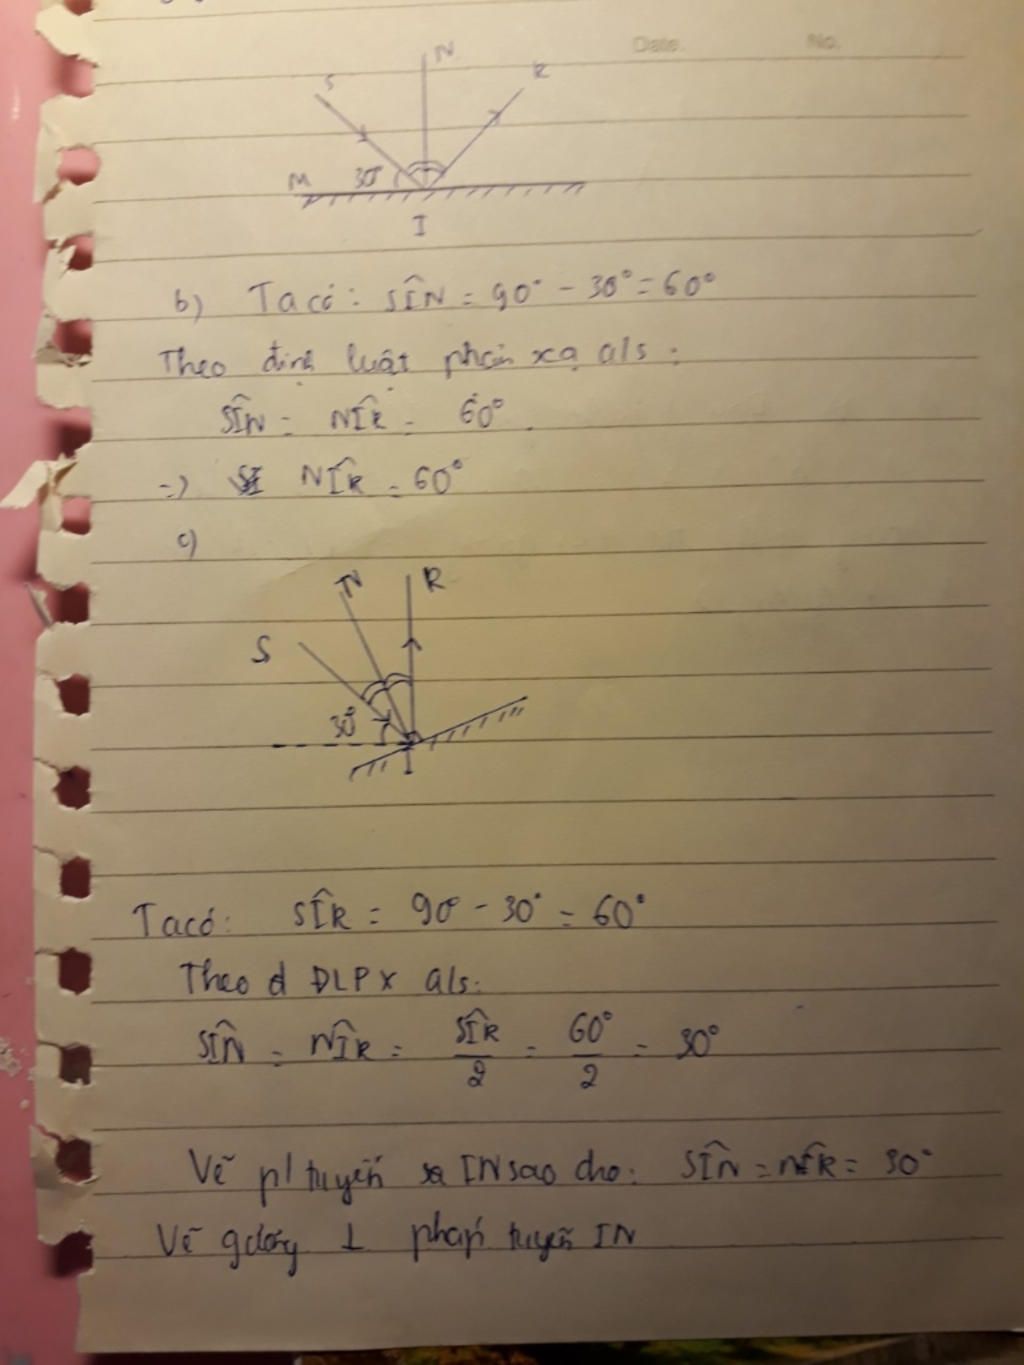 Date. No.
S N R
M 30°
I
b) Ta có: SÎN = 90° - 30° = 60°
Theo định luật phản xạ a/s:
SÎN = NÎR = 60°.
=> NÎR = 60°
c)
N R
S
30°
I
Ta có: SÎR = 90° - 30° = 60°
Theo đ ĐLPX a/s:
SÎN = NÎR = SÎR/2 = 60°/2 = 30°
Vẽ p/tuyến IN sao cho: SÎN = NÎR = 30°
Vẽ gương ⊥ pháp tuyến IN